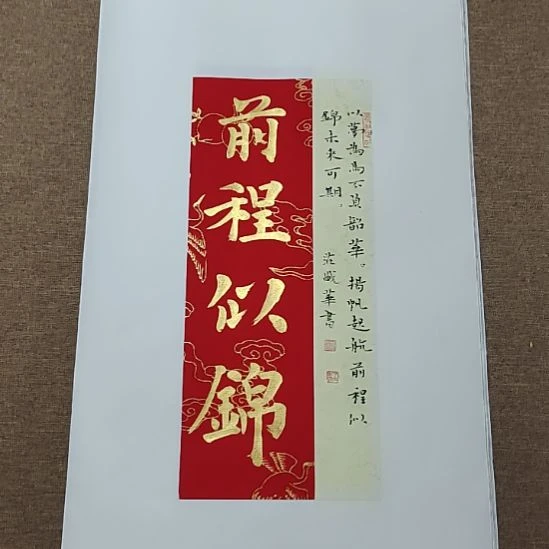 前程似錦
以夢為馬不負韶華。揚帆起航前程似
錦未來可期。
華書